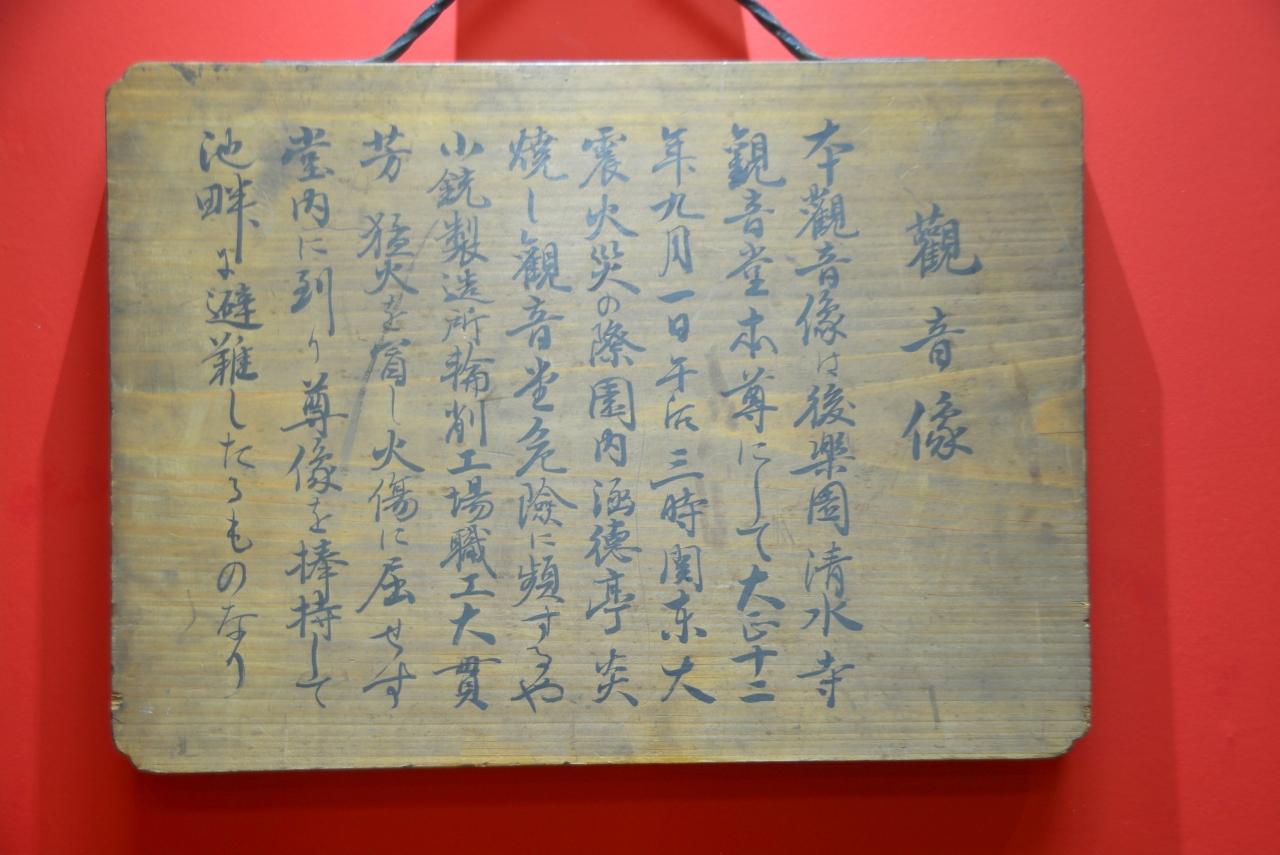 觀音像
本觀音像は後樂園清水寺
觀音堂本尊にして大正十二
年九月一日午后三時関东大
震火災の際園内涵德亭炎
燒し観音堂危險に頻するや
小銃製造所輪削工場職工大貫
芳 猛火を冒し火傷に屈せす
堂内に到り尊像を捧持して
池畔に避難したるものなり